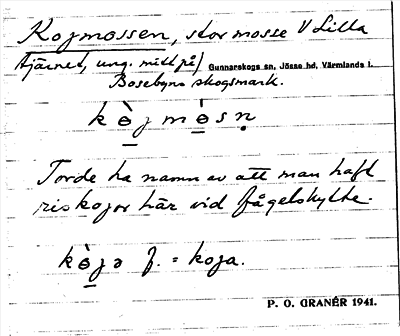 Kojmossen, stor mosse V Lilla
tjärnet, ung. mitt på/ Gunnarskogs sn, Jösse hd, Värmlands l.
Bosebyns skogsmark.
kòjmòsn̥
Torde ha namn av att man haft
riskojor här vid fågelskytte.
kòjə f. = koja.
P. O. GRANÉR 1941.